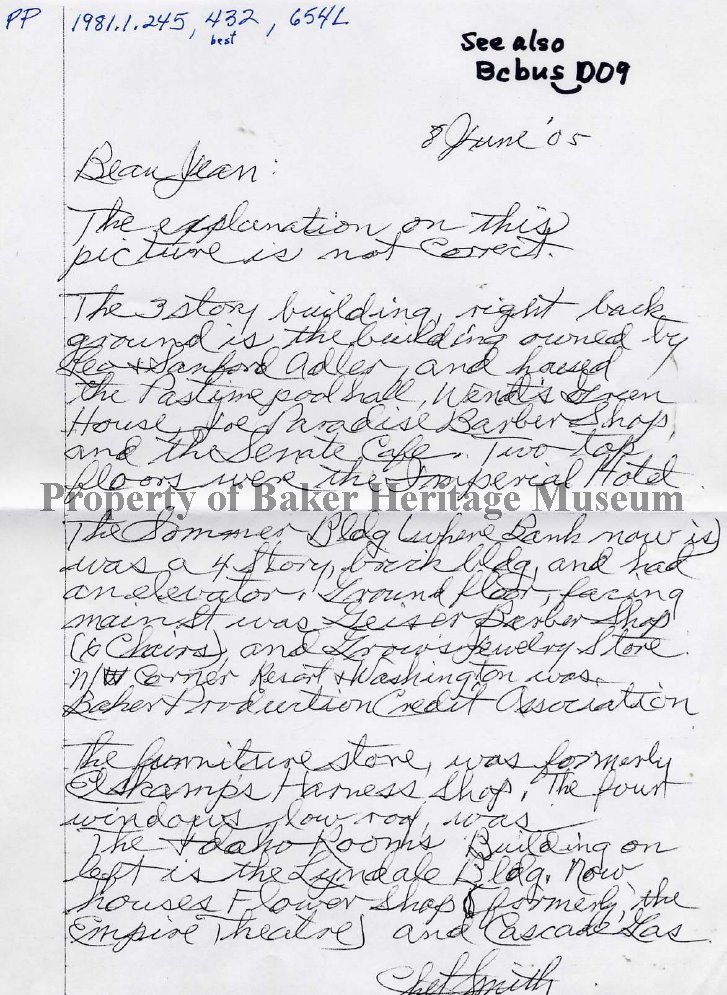 PP 1981.1.245, 432, 654L
best
See also
Bcbus D09
8 June '05
Dear Jean:
The explanation on this
picture is not correct.
The 3 story building, right back
ground is the building owned by
Leo & Sanford Adler, and housed
the Pastime pool hall, Wend's
House, Joe Paradise Barber Shop,
and the Senate Cafe. Two top
floors were the Imperial Hotel
Property of Baker Heritage Museum
The Sommer Bldg (where Bank now is)
was a 4 story, brick bldg, and had
an elevator. Ground floor, facing
main St was Geiser Barber Shop
(6 Chairs), and Grow's Jewelry Store.
N/W Corner Resort & Washington was
Baker Production Credit Association
The furniture store, was formerly
Elskamp's Harness Shop. The four
windows, low roof, was
The Idaho Rooms. Building on
left is the Lyndale Bldg. Now
houses Flower Shop (formerly the
Empire Theatre) and Cascade Gas
Chet Smith